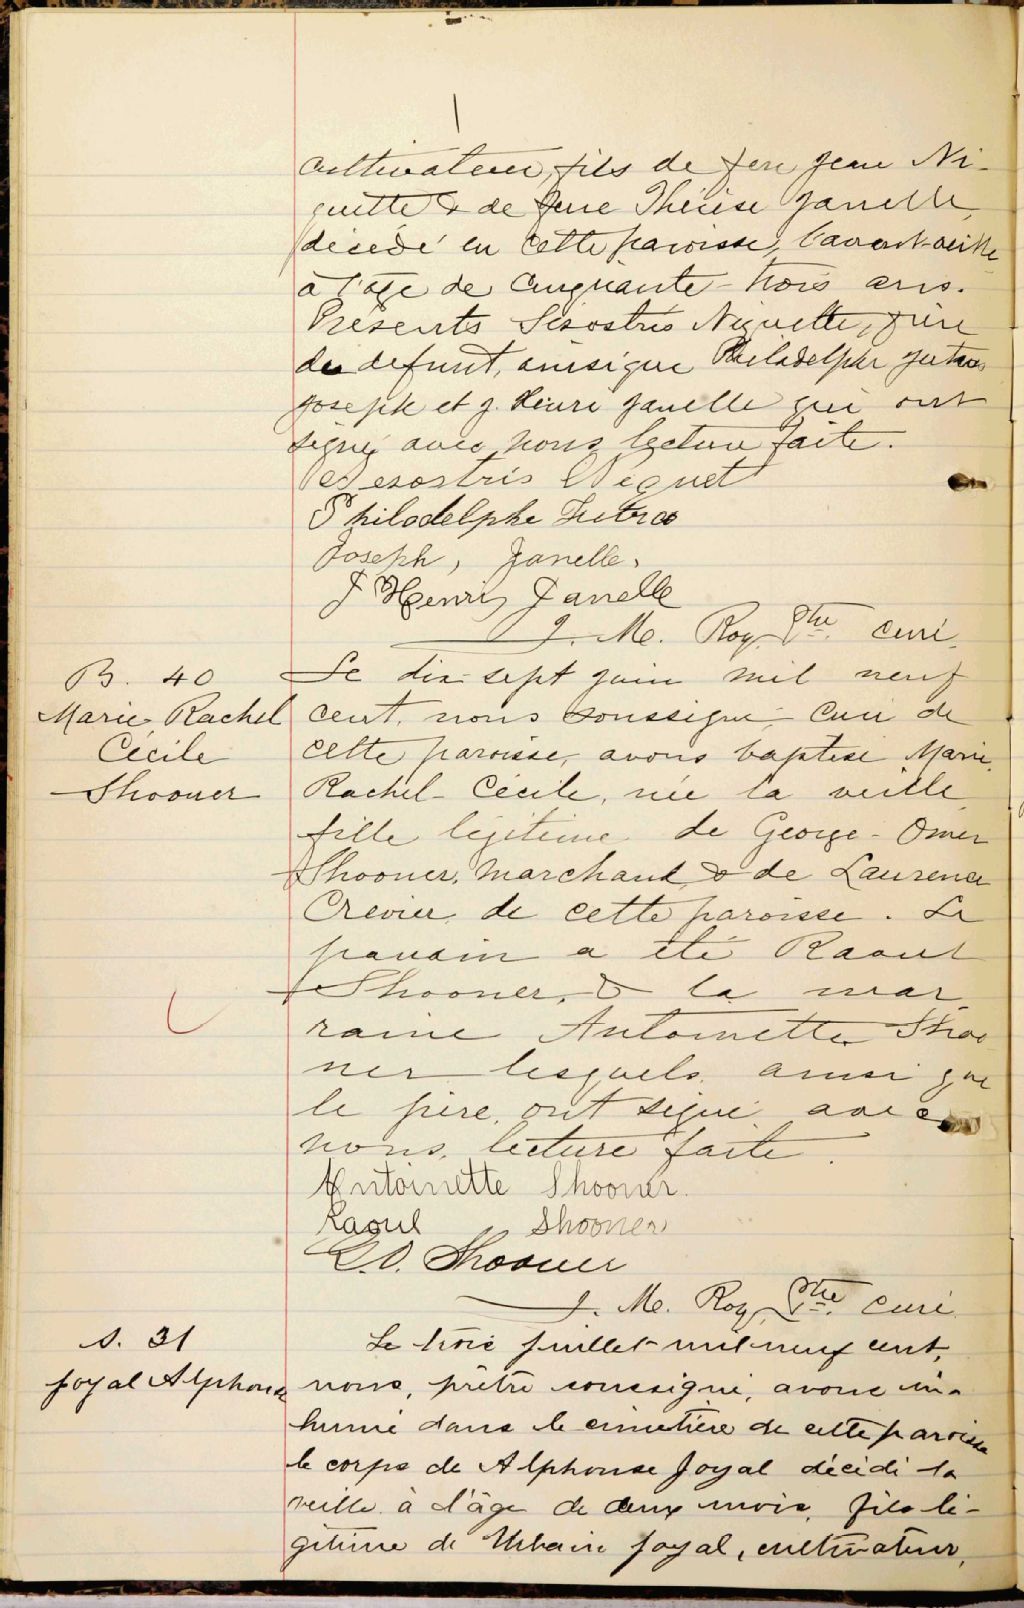 cultivateur, fils de feu Jean Ni-
quette & de feue Thérèse Janelle,
décédé en cette paroisse, l'avant-veille
à l'age de cinquante-trois ans.
Présents Sésostris Niquette, frère
du defunt, ainsique Philadelphe Jutras
Joseph et J. Henri Janelle qui ont
signé avec nous lecture faite.
Sesostris Niquet
Philodelphe Jutras
Joseph, Janelle.
J Henri Janelle
J. M. Roy, Ptre. curé.
B. 40
Marie Rachel
Cécile
Shooner
Le dix sept juin mil neuf
cent, nous soussigné, curé de
cette paroisse, avons baptisé Marie
Rachel-Cécile, née la veille,
fille légitime de George-Omer
Shooner, marchand & de Laurence
Crevier, de cette paroisse. Le
parrain a été Raoul
Shooner, & la mar
raine Antoinette Shoo
ner lesquels, ainsi que
le père, ont signé avec
nous, lecture faite.
Antoinette Shooner.
Raoul Shooner
G.O. Shooner
J. M. Roy, Ptre. curé.
S. 31
Joyal Alphonse
Le trois juillet mil neuf cent,
nous, prêtre soussigné, avons in-
humé dans le cimetière de cette paroisse
le corps de Alphonse Joyal décédé la
veille à l'âge de deux mois, fils lé-
gitime de Urbain Joyal, cultivateur,